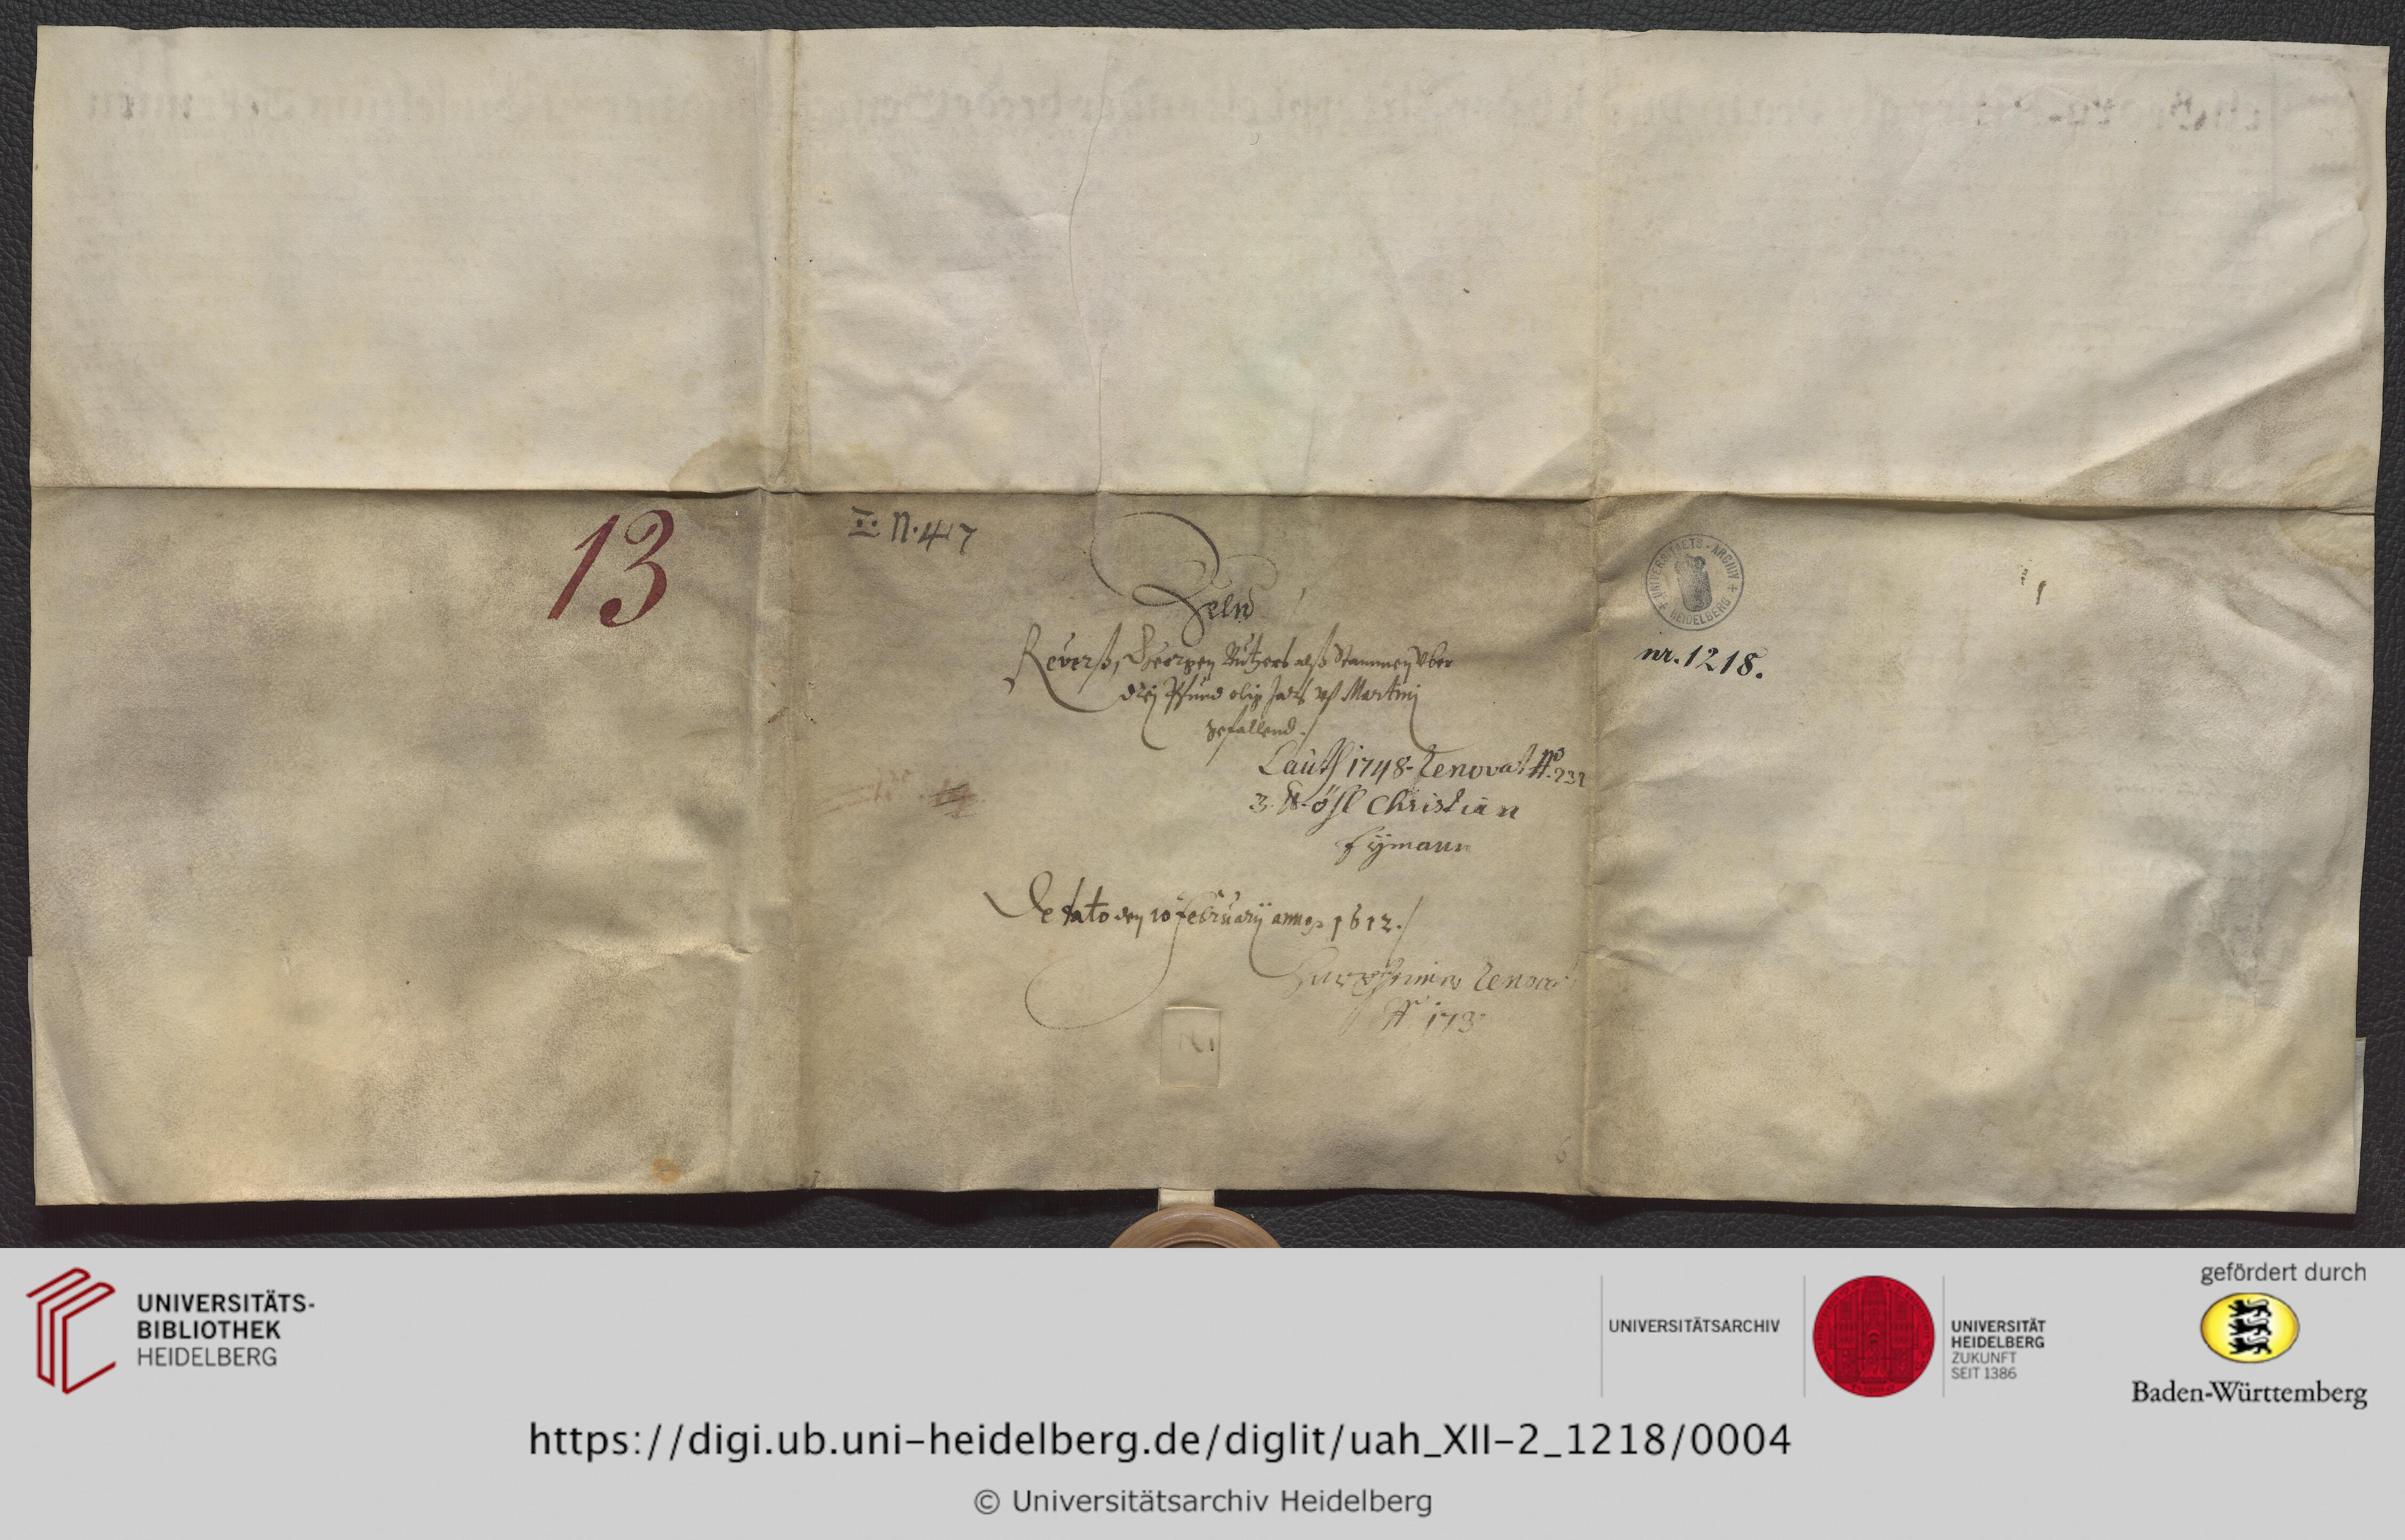 13
I: N. 47
Zeln
Reverß, Georgen Butzers alß Stammen Uber
drey Pfund olig Jars uff Martinj
gefallend./
Lauth 1748. Renovat. N° 231
3. ℔. öhl Christian
Eymann
De dato den 10 February anno 1612./
Renovat
173
UNIVERSITAETS-ARCHIV
HEIDELBERG
nr. 1218.
UNIVERSITÄTS-
BIBLIOTHEK
HEIDELBERG
UNIVERSITÄTSARCHIV
UNIVERSITÄT
HEIDELBERG
ZUKUNFT
SEIT 1386
gefördert durch
Baden-Württemberg
https://digi.ub.uni-heidelberg.de/diglit/uah_XII-2_1218/0004
© Universitätsarchiv Heidelberg